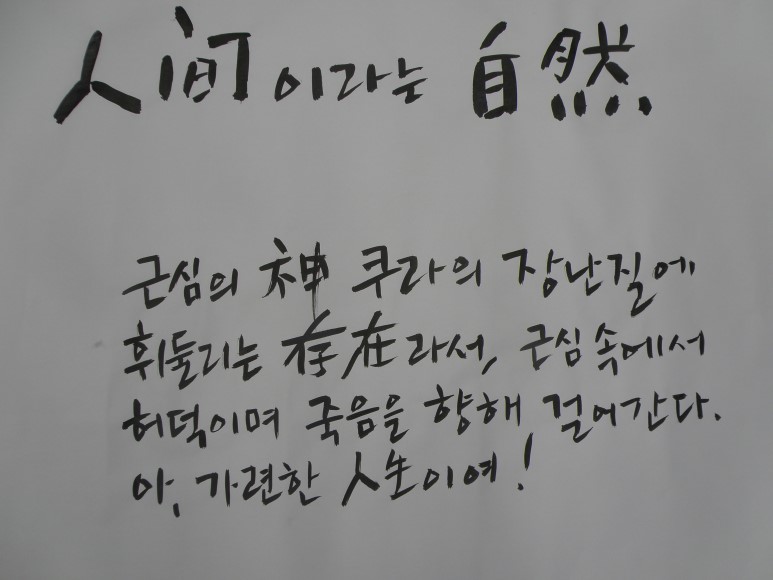 人间이라는 自然
근심의 神 쿠라의 장난질에
휘둘리는 存在라서, 근심 속에서
허덕이며 죽음을 향해 걸어간다.
아, 가련한 人生이여!